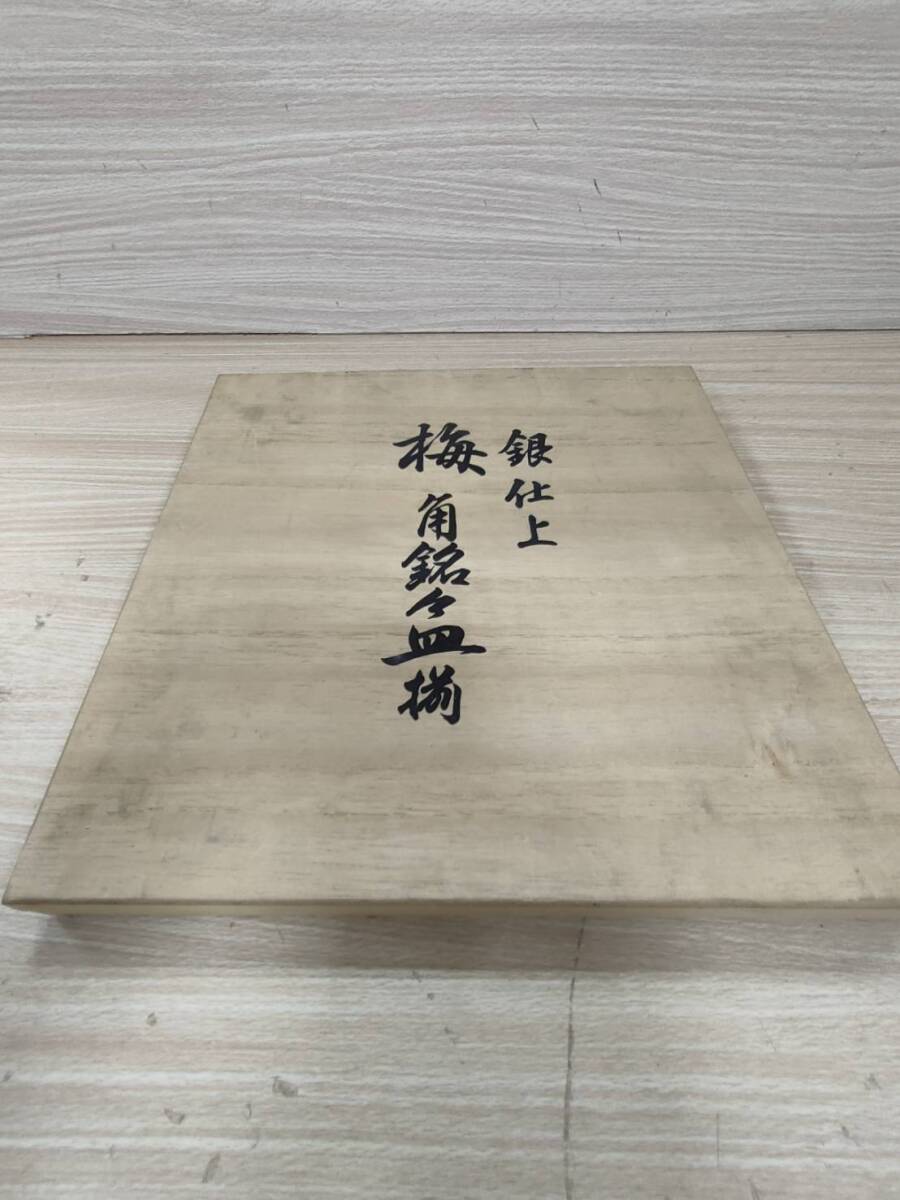 銀仕上
梅角銘々皿揃